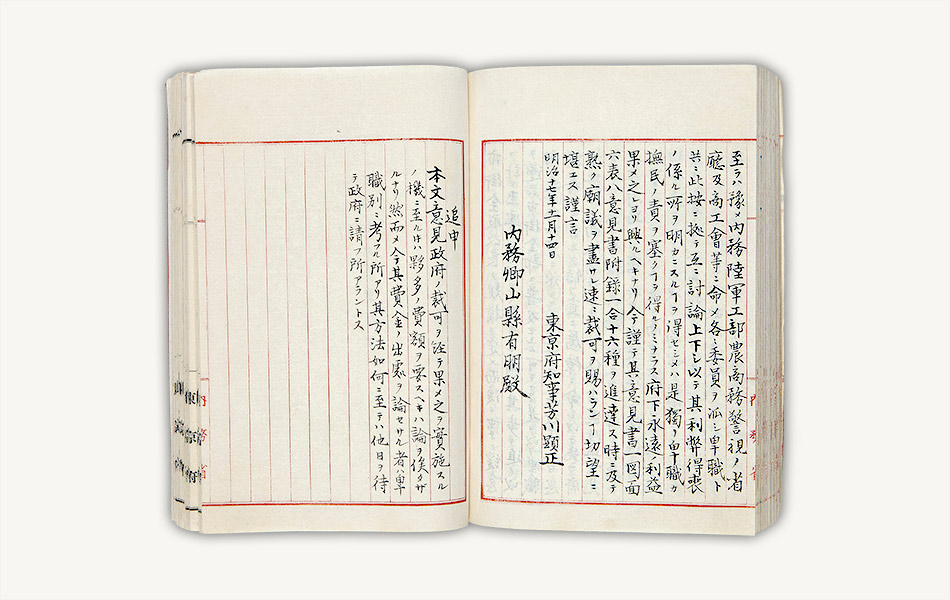 至ラハ豫メ内務陸軍工部農商務警視ノ省
廳及商工會等ニ命メ各々委員ヲ派シ卑職ト
共ニ此按ニ拠テ互ニ討論上下シ以テ其利弊得喪
ノ係ル所ヲ明カニスルヿヲ得セシメハ是獨リ卑職カ
撫民ノ責ヲ塞クヿヲ得ルノミナラス府下永遠ノ利益
果メ之レヨリ興ルヘキナリ今謹テ其意見書一図面
六表八意見書附録一合十六種ヲ進達ス時ニ及テ
熟ク廟議ヲ盡サレ速ニ裁可ヲ賜ハランヿ切望ニ
堪エス謹言
明治十七年十一月十四日
東京府知事芳川顕正
内務卿山縣有朋殿
追申
本文意見政府ノ裁可ヲ経テ果メ之ヲ實施スル
ノ機ニ至ル片ハ夥多ノ費額ヲ要スヘキハ論ヲ俟タサ
ルナリ然而メ今其費金ノ出處ヲ論セサル者ハ卑
職別ニ考フル所アリ其方法如何ニ至テハ他日ヲ待
テ政府ニ請フ所アラントス
内務省
内務省